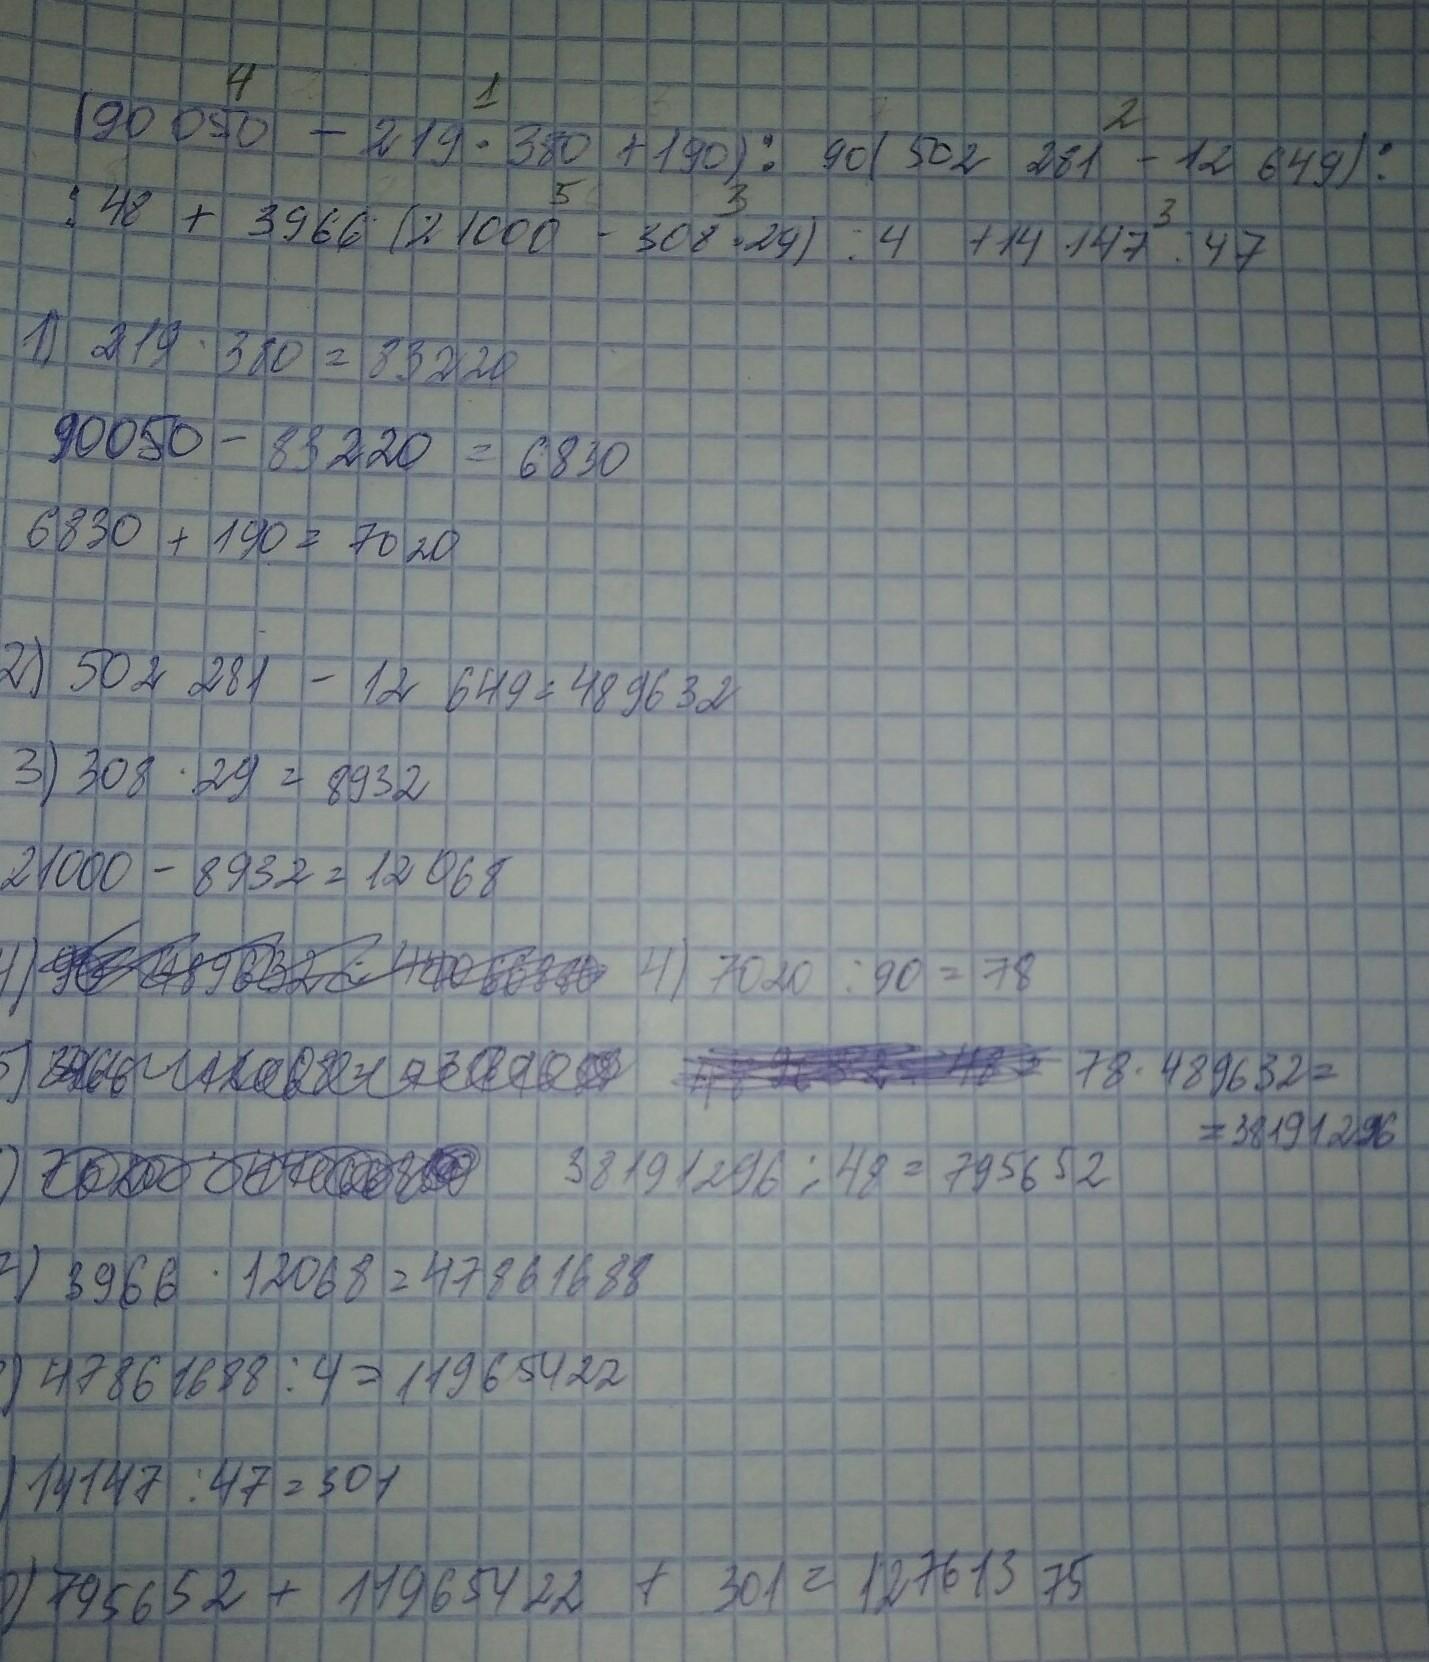 4 1 2
(90 050 - 219 · 380 + 190) : 90 (502 281 - 12 649) :
5 3 3
: 48 + 3966 (21000 - 308 · 29) : 4 + 14 147 : 47
1) 219 · 380 = 83220
90050 - 83220 = 6830
6830 + 190 = 7020
2) 502 281 - 12 649 = 489632
3) 308 · 29 = 8932
21000 - 8932 = 12068
4) 4) 7020 : 90 = 78
5) 78 · 489632 =
= 38191296
) 38191296 : 48 = 795652
7) 3966 · 12068 = 47861688
) 47861688 : 4 = 11965422
) 14147 : 47 = 301
) 795652 + 11965422 + 301 = 12761375